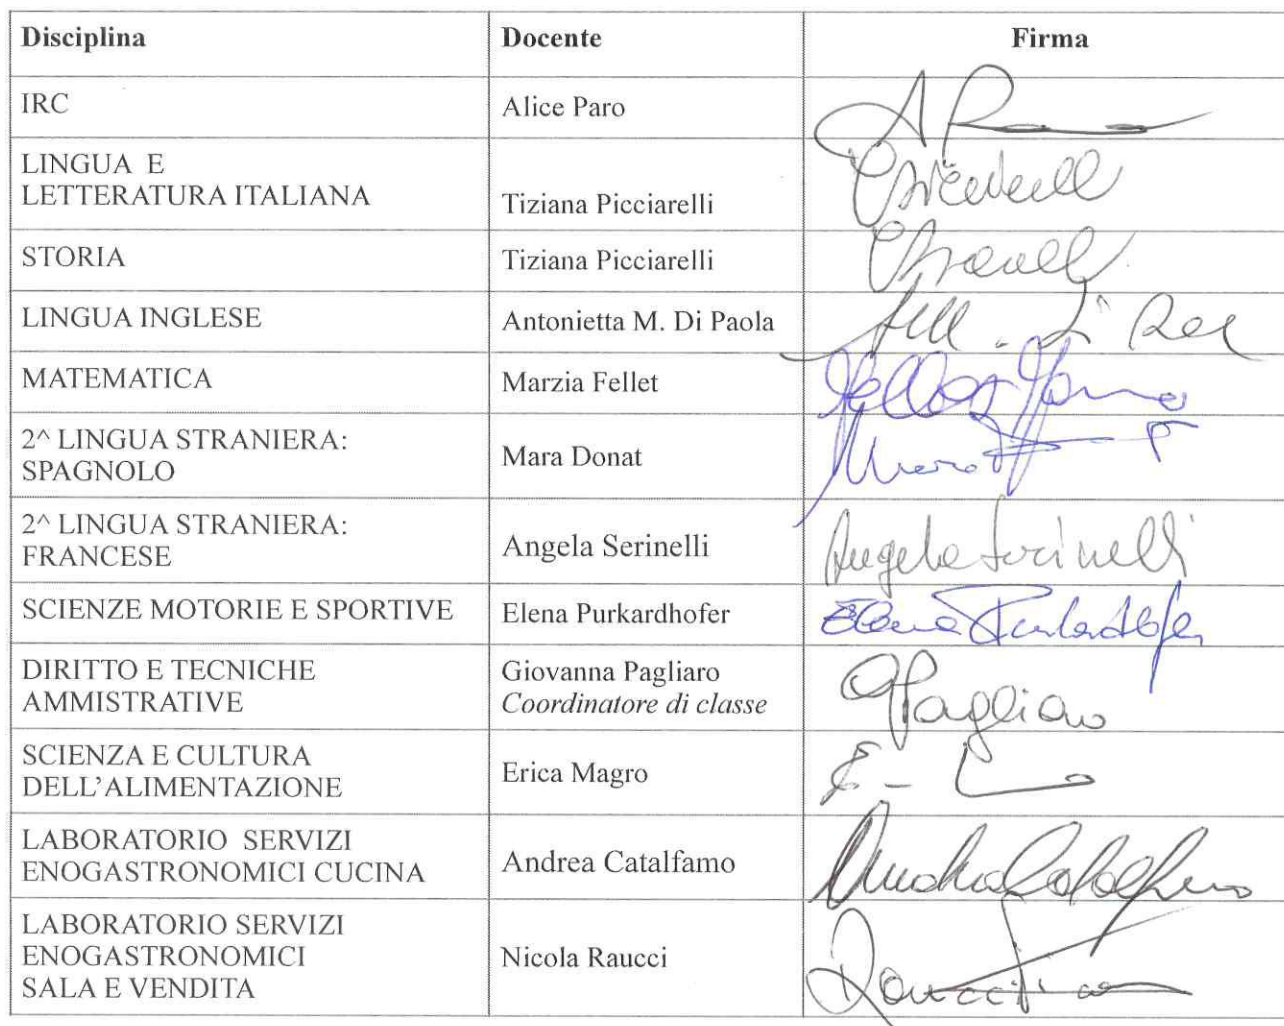 Disciplina Docente Firma
IRC Alice Paro
LINGUA E
LETTERATURA ITALIANA Tiziana Picciarelli
STORIA Tiziana Picciarelli
LINGUA INGLESE Antonietta M. Di Paola
MATEMATICA Marzia Fellet
2^ LINGUA STRANIERA:
SPAGNOLO Mara Donat
2^ LINGUA STRANIERA:
FRANCESE Angela Serinelli Angela Serinelli
SCIENZE MOTORIE E SPORTIVE Elena Purkardhofer Elena Purkardhofer
DIRITTO E TECNICHE Giovanna Pagliaro
AMMISTRATIVE Coordinatore di classe GPagliaro
SCIENZA E CULTURA
DELL'ALIMENTAZIONE Erica Magro
LABORATORIO SERVIZI
ENOGASTRONOMICI CUCINA Andrea Catalfamo
LABORATORIO SERVIZI
ENOGASTRONOMICI Nicola Raucci
SALA E VENDITA